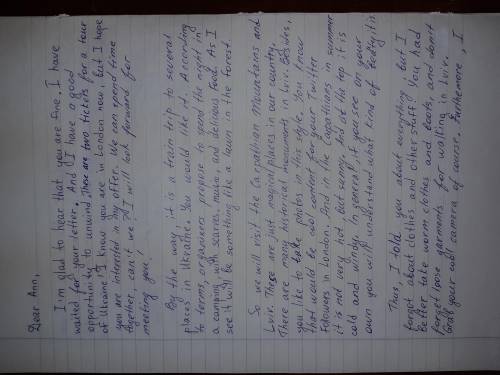 Dear Ann,
I'm glad to hear that you are fine. I have
waited for your letter. And I have a good
opportunity to unwind. These are two tickets for a tour
of Ukraine. I know you are in London now, but I hope
you are interested in my offer. We can spend time
together, can't we? I will look forward for
meeting you!
By the way, it is a train trip to several
places in Ukraine. You would like it. According
to terms, organisers propose to spend the night in
a camping with scaries, music, and delicious food. As I
see it will be something like a lawn in the forest.
So we will visit the Carpathian Mountains and
Lviv. These are just magical places in our country.
There are many historical monuments in Lviv. Besides,
you like to take photos in this style. You know
that would be cool content for your Twitter
followers in London. And in the Carpathians in summer
it is not very hot, but sunny. And at the top it is
cold and windy. In general, if you see on your
own you will understand what kind of beauty it is.
Thus, I told you about everything, but I
forgot about clothes and other stuff! You had
better take worm clothes and boots, and do not
forget loose garments for walking in Lviv.
Grab your cool camera of course. Furthemore, I